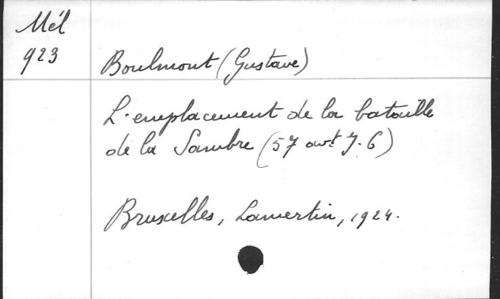 Mél
923
Boulmont (Gustave)
L'emplacement de la bataille
de la Sambre (57 avt J.C)
Bruxelles, Lamertin, 1924.